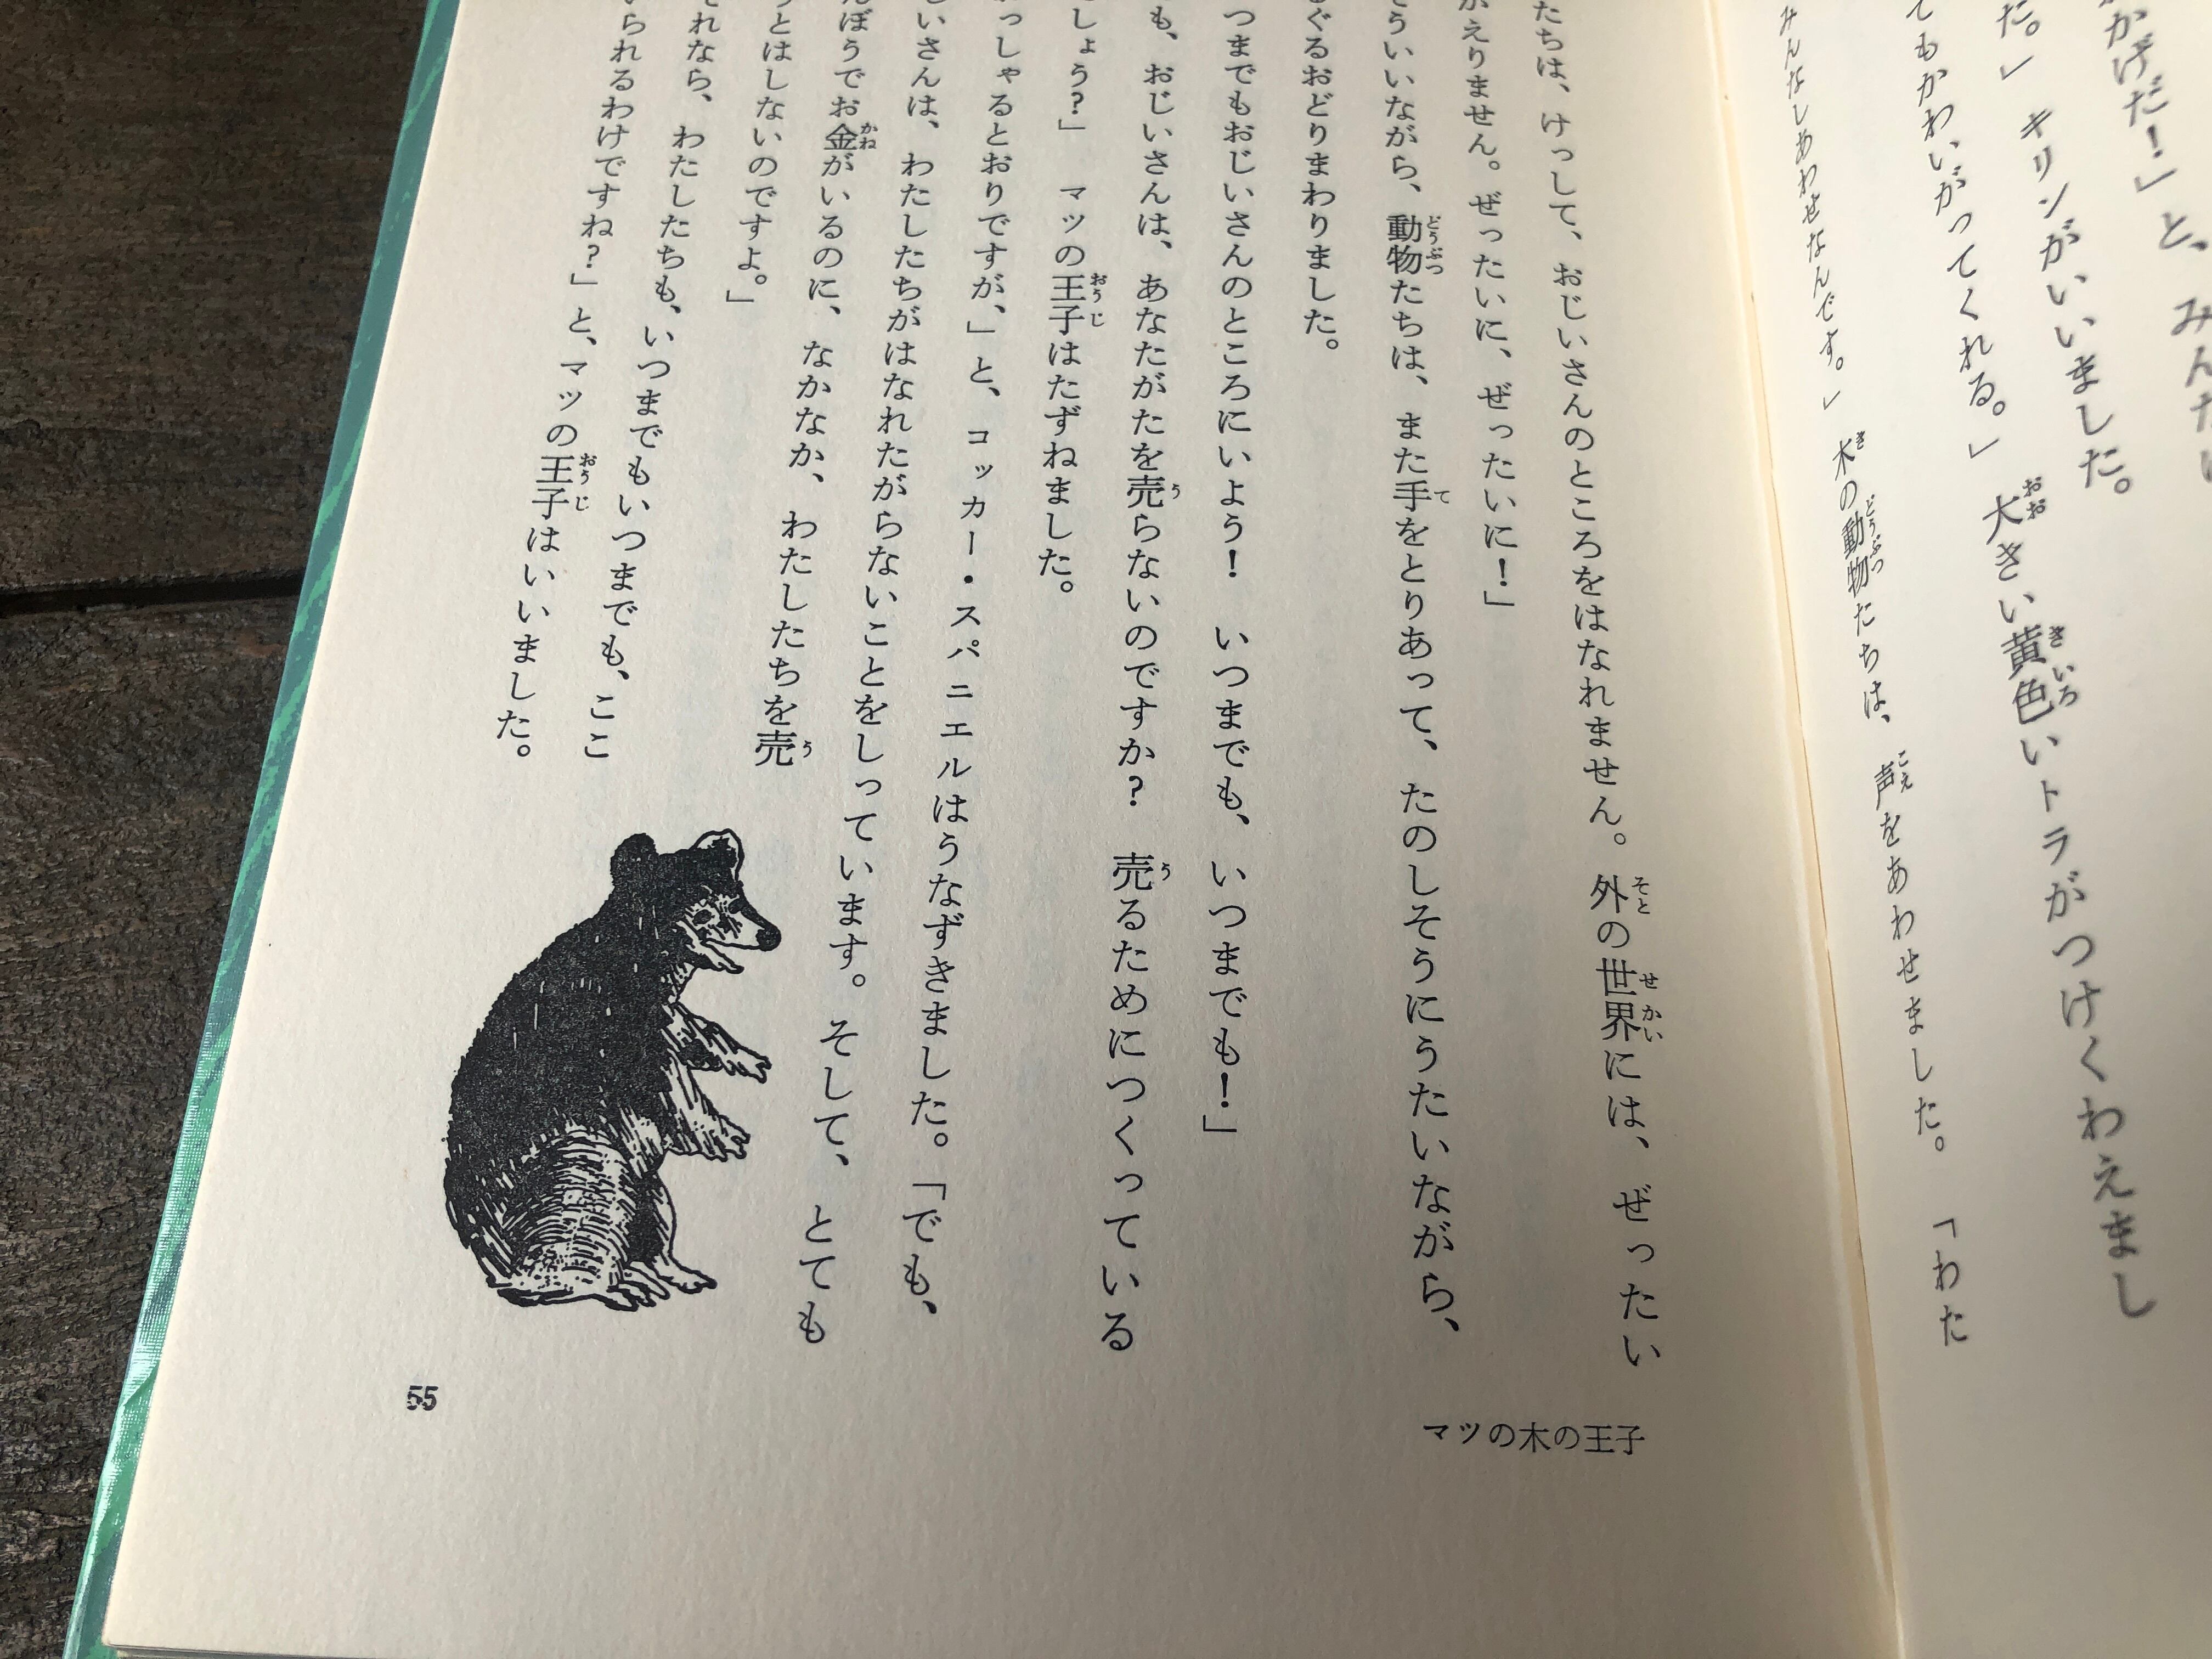 かげだ！」と、みんな
た。」キリンがいいました。
てもかわいがってくれる。」大きい黄色いトラがつけくわえまし
みんなしあわせなんです。」木の動物たちは、声をあわせました。「わた
たちは、けっして、おじいさんのところをはなれません。外の世界には、ぜったい
かえりません。ぜったいに、ぜったいに！」
そういいながら、動物たちは、また手をとりあって、たのしそうにうたいながら、
ぐるおどりまわりました。
つまでもおじいさんのところにいよう！　いつまでも、いつまでも！」
も、おじいさんは、あなたがたを売らないのですか？　売るためにつくっている
しょう？」　マツの王子はたずねました。
っしゃるとおりですが、」と、コッカー・スパニエルはうなずきました。「でも、
いさんは、わたしたちがはなれたがらないことをしっています。そして、とても
んぼうでお金がいるのに、なかなか、わたしたちを売
とはしないのですよ。」
それなら、わたしたちも、いつまでもいつまでも、ここ
いられるわけですね？」と、マツの王子はいいました。
55
マツの木の王子